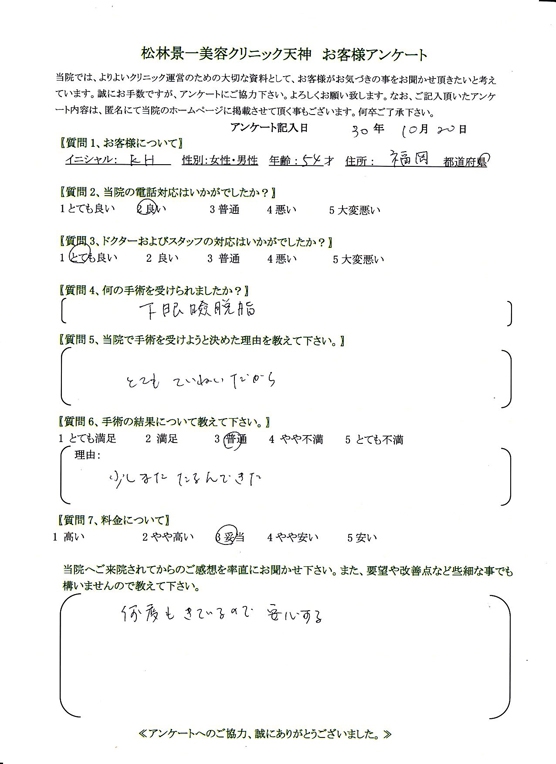 松林景一美容クリニック天神　お客様アンケート
当院では、よりよいクリニック運営のための大切な資料として、お客様がお気づきの事をお聞かせ頂きたいと考え
ています。誠にお手数ですが、アンケートにご協力下さい。よろしくお願い致します。なお、ご記入頂いたアンケ
ート内容は、匿名にて当院のホームページに掲載させて頂く事もございます。何卒ご了承下さい。
アンケート記入日　30年　10月20日
【質問1、お客様について】
イニシャル: KH　性別:女性・男性　年齢:54才　住所:　福岡　都道府県
【質問2、当院の電話対応はいかがでしたか?】
1とても良い　2良い　3普通　4悪い　5大変悪い
【質問3、ドクターおよびスタッフの対応はいかがでしたか?】
1とても良い　2 良い　3 普通　4悪い　5大変悪い
【質問4、何の手術を受けられましたか?】
下眼瞼脱脂
【質問5、当院で手術を受けようと決めた理由を教えて下さい。】
とても ていねいだから
【質問6、手術の結果について教えて下さい。】
1 とても満足　2 満足　3 普通　4 やや不満　5 とても不満
理由:
少しまた たるんできた
【質問7、料金について】
1 高い　2やや高い　3妥当　4やや安い　5安い
当院へご来院されてからのご感想を率直にお聞かせ下さい。また、要望や改善点など些細な事でも
構いませんので教えて下さい。
何度も きているので 安心する
≪アンケートへのご協力、誠にありがとうございました。≫